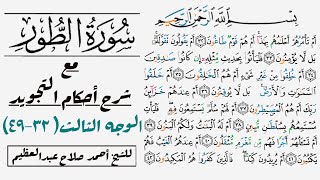 بِسْمِ اللَّهِ الرَّحْمَٰنِ الرَّحِيمِ
أَمْ تَأْمُرُهُمْ أَحْلَٰمُهُم بِهَٰذَآ أَمْ هُمْ قَوْمٌ طَاغُونَ ٣٢ أَمْ يَقُولُونَ تَقَوَّلَهُۥ
بَل لَّا يُؤْمِنُونَ ٣٣ فَلْيَأْتُوا۟ بِحَدِيثٍ مِّثْلِهِۦٓ إِن كَانُوا۟ صَٰدِقِينَ ٣٤
أَمْ خُلِقُوا۟ مِنْ غَيْرِ شَىْءٍ أَمْ هُمُ ٱلْخَٰلِقُونَ ٣٥ أَمْ خَلَقُوا۟
ٱلسَّمَٰوَٰتِ وَٱلْأَرْضَ بَل لَّا يُوقِنُونَ ٣٦ أَمْ عِندَهُمْ خَزَآئِنُ
رَبِّكَ أَمْ هُمُ ٱلْمُصَۣيْطِرُونَ ٣٧ أَمْ لَهُمْ سُلَّمٌ يَسْتَمِعُونَ فِيهِ فَلْيَأْتِ
مُسْتَمِعُهُم بِسُلْطَٰنٍ مُّبِينٍ ٣٨ أَمْ لَهُ ٱلْبَنَٰتُ وَلَكُمُ ٱلْبَنُونَ ٣٩
أَمْ تَسْـَٔلُهُمْ أَجْرًا فَهُم مِّن مَّغْرَمٍ مُّثْقَلُونَ ٤٠ أَمْ عِندَهُمُ ٱلْغَيْبُ فَهُمْ
يَكْتُبُونَ ٤١ أَمْ يُرِيدُونَ كَيْدًا فَٱلَّذِينَ كَفَرُوا۟ هُمُ ٱلْمَكِيدُونَ ٤٢
سُورَةُ الطُّورِ
مع
شرح أحكام التجويد
الوجه الثالث (٣٢-٤٩)
للشيخ أحمد صلاح عبدالعظيم